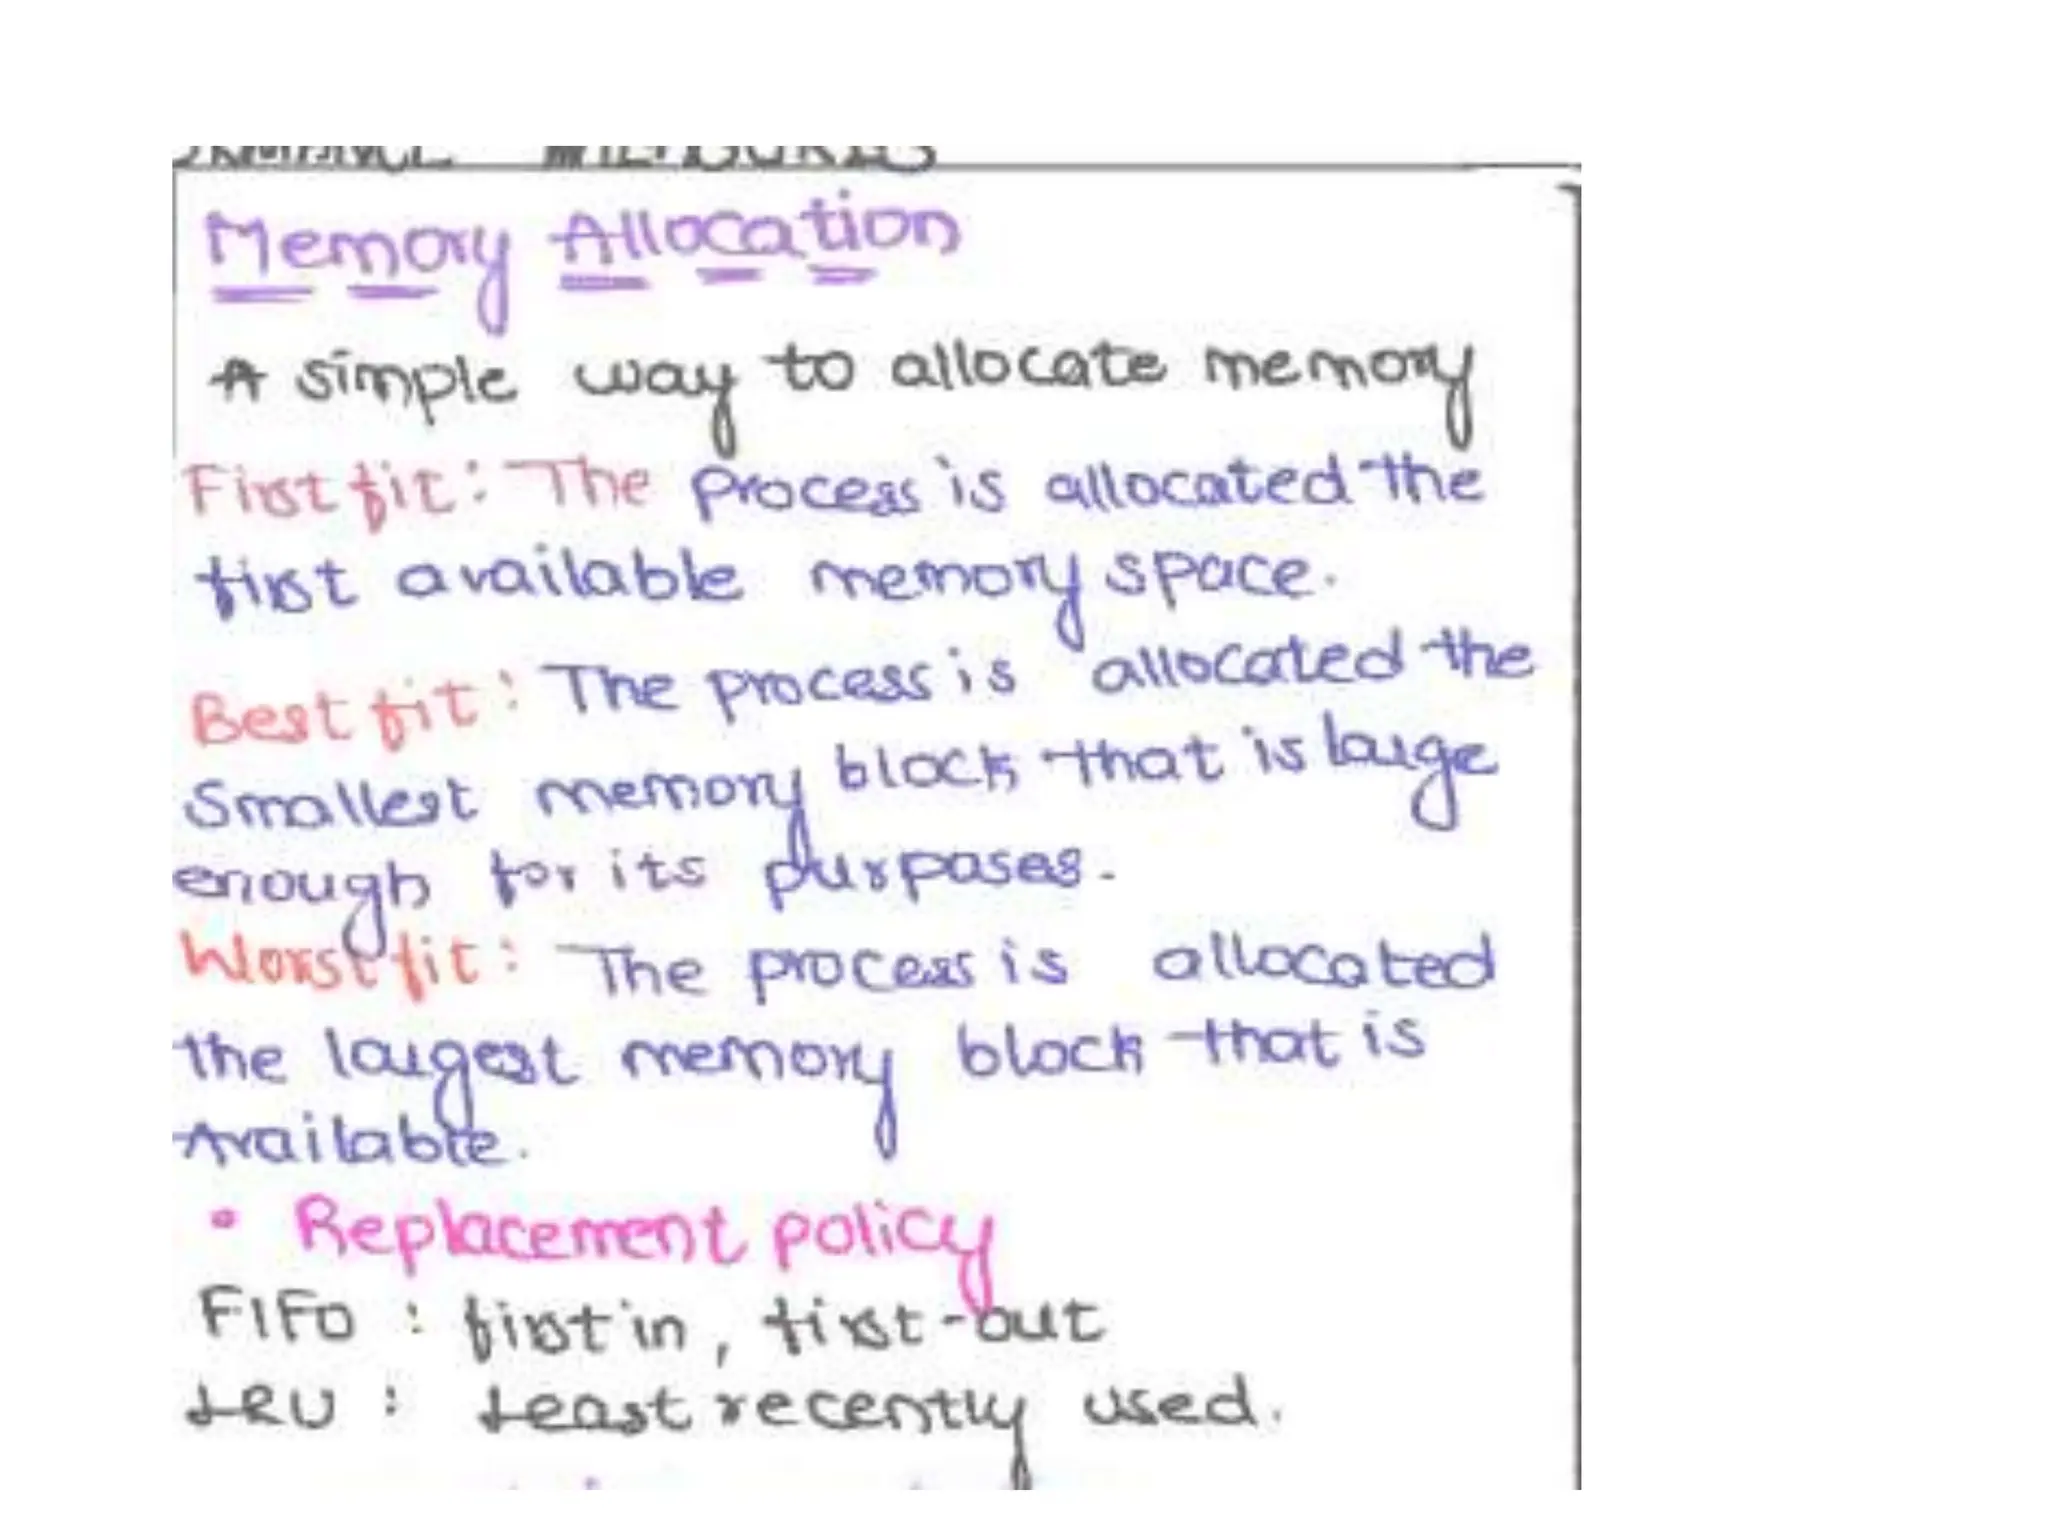 Memory Allocation
A simple way to allocate memory
First fit: The process is allocated the
first available memory space.
Best fit: The process is allocated the
Smallest memory block that is large
enough for its purpases.
Worst fit: The process is allocated
the largest memory block that is
Available.
• Replacement policy
FIFO : first in, first-out
LRU : Least recently used.